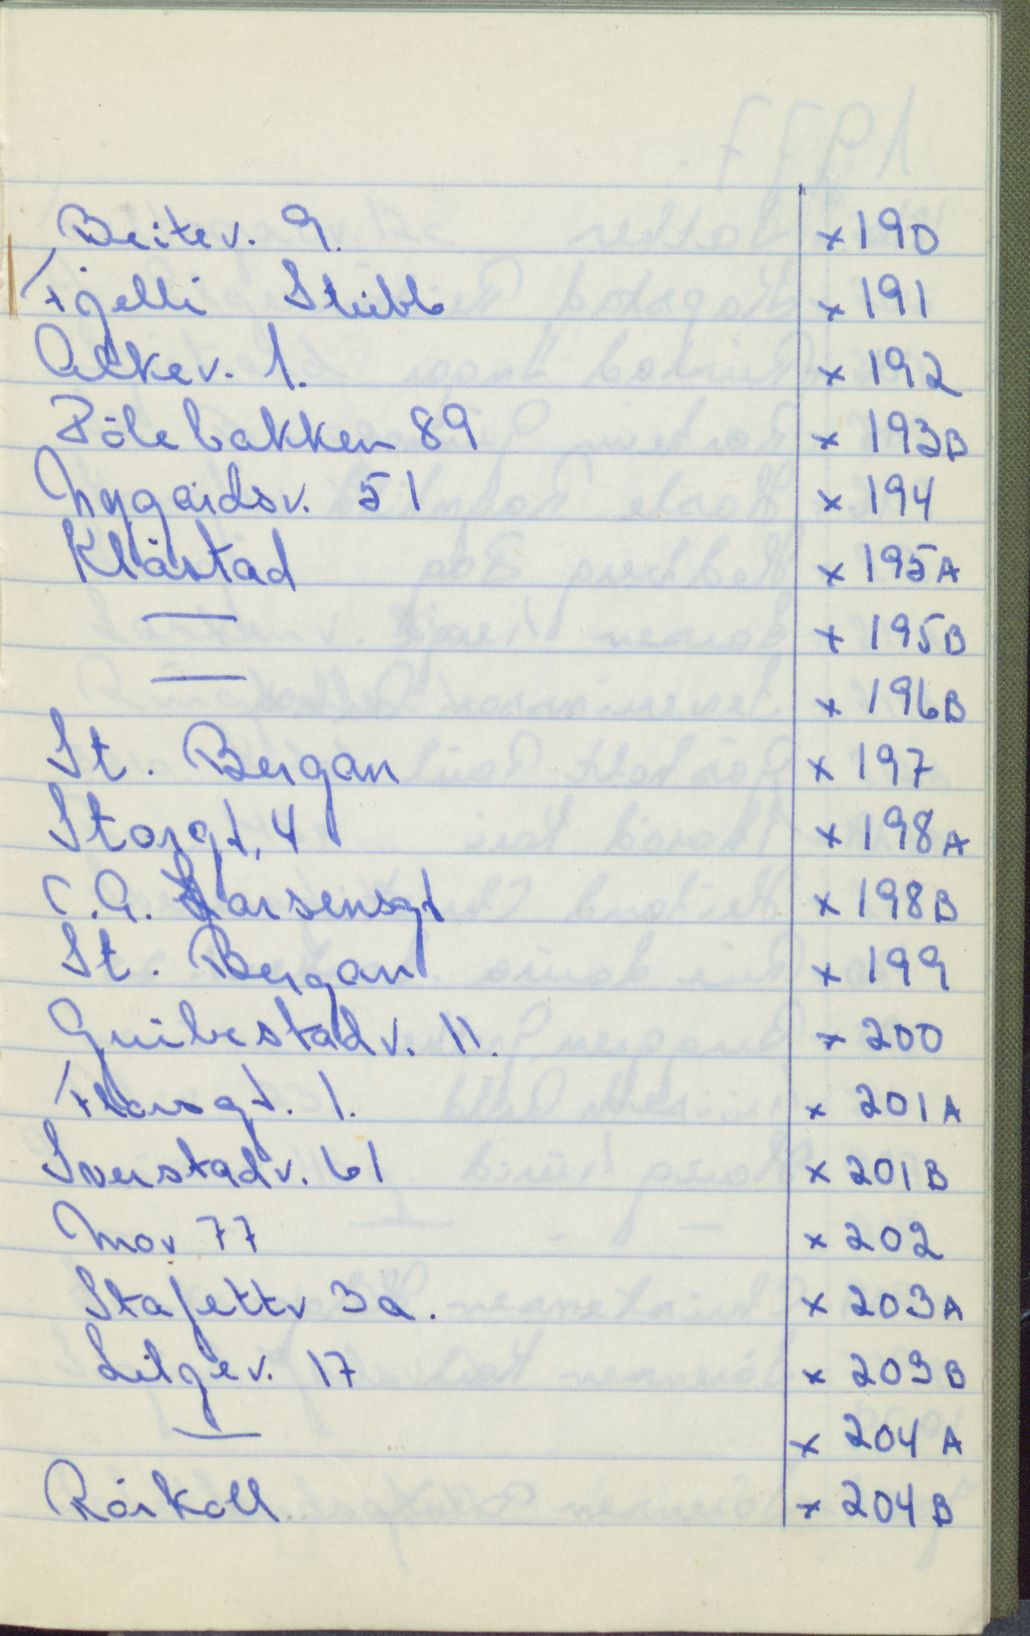 Beitev. 9. x 190
Fjelli Stubb x 191
Alkev. 1. x 192
Pölebakken 89 x 193B
Nygårdsv. 51 x 194
Klåstad x 195A
— x 195B
— x 196B
St. Bergan x 197
Storgt. 4 x 198A
C.A. Larsensgt x 198B
St. Bergan x 199
Gribestadv. 11. x 200
Thorsgt. 1. x 201A
Sverstadv. 61 x 201B
Mov 77 x 202
Stafettv 3a. x 203A
Liljev. 17 x 203B
— x 204A
Råstad x 204B